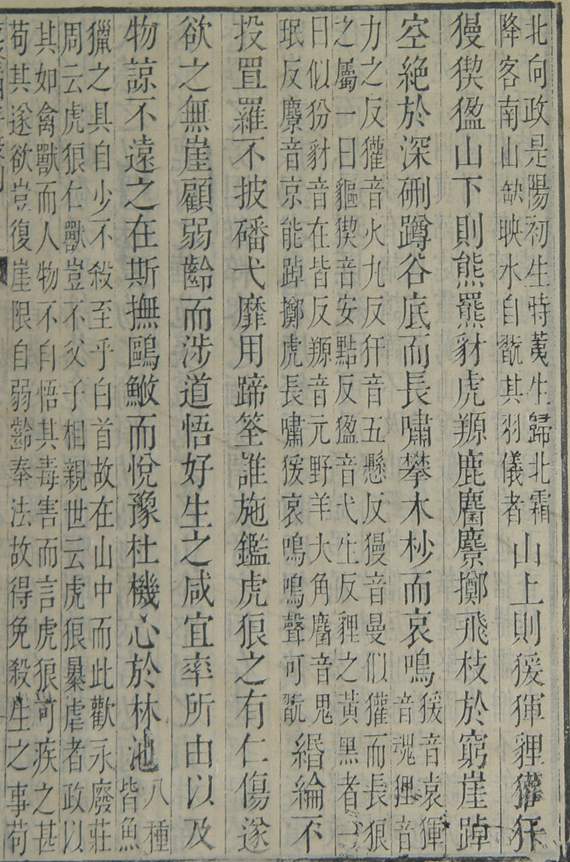 北向政是陽初生時黃生歸北霜
降客南山缺映水自翫其羽儀者
山上則猨㺔貍獾犴
獌猰㹭山下則熊羆豺虎羱鹿麕麖擲飛枝於窮崖踔
空絶於深硎蹲谷底而長嘯攀木杪而哀鳴
猨音袁㺔
音魂貍音
力之反獾音火九反犴音五懸反獌音曼似獾而長狼
之屬一曰貙猰音安黠反㹭音弋生反貍之黃黑者一
曰似豺音在皆反羱音元野羊大角麕音鬼
珉反麖音京能踔擲虎長嘯猨哀鳴鳴聲可翫
緡綸不
投罝羅不披磻弋靡用蹄筌誰施鑑虎狼之有仁傷遂
欲之無崖顧弱齡而涉道悟好生之咸宜率所由以及
物諒不遠之在斯撫鷗鮍而悅豫杜機心於林池
八種
皆魚
獵之具自少不殺至乎白首故在山中而此歡永廢莊
周云虎狼仁獸豈不父子相親世云虎狼暴虐者政以
其如禽獸而人物不自悟其毒害而言虎狼可疾之甚
苟其遂欲豈復崖限自弱齡奉法故得免殺生之事苟